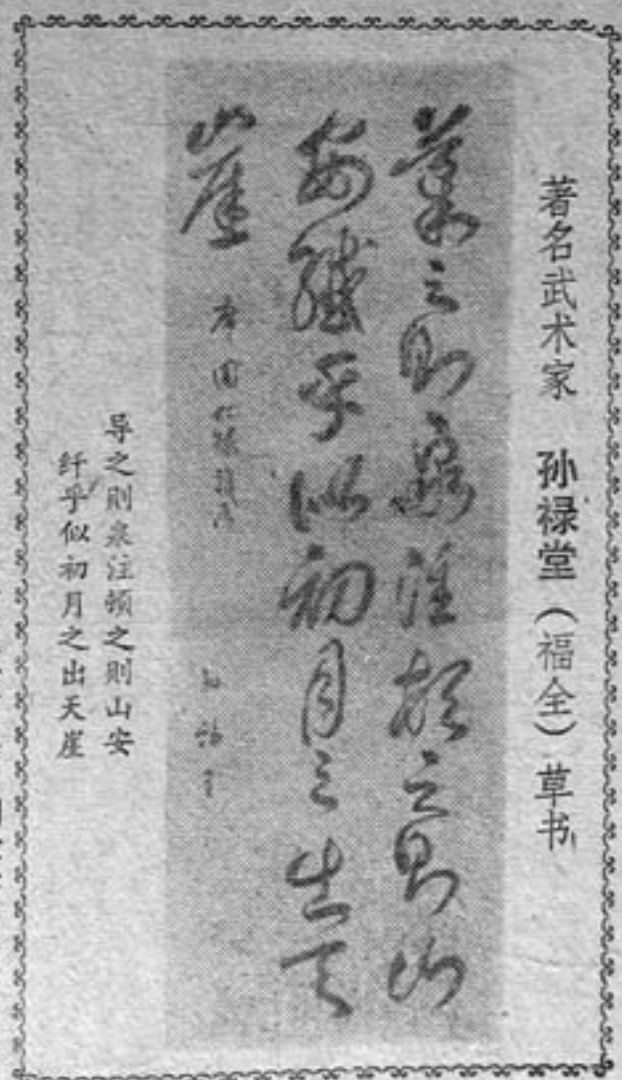 著名武术家 孙禄堂（福全）草书
导之则泉注顿之则山
安纤乎似初月之出天
崖
孙福全
导之则泉注顿之则山安
纤乎似初月之出天崖